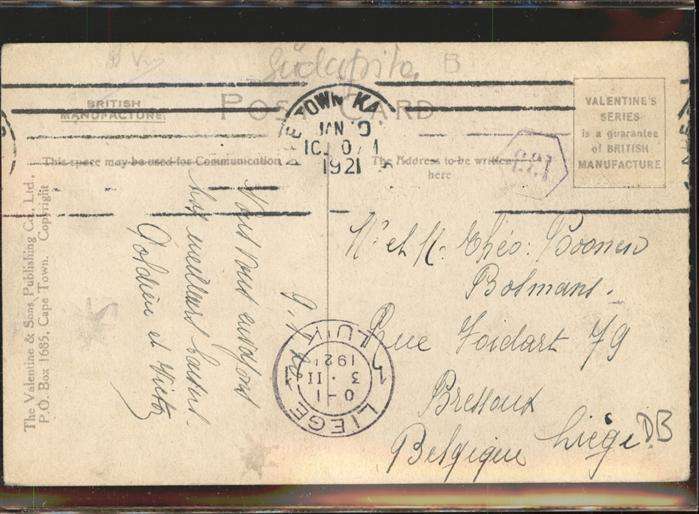 Südafrika B
BRITISH
MANUFACTURE.
POST CARD
VALENTINE'S
SERIES
is a guarantee
of BRITISH
MANUFACTURE
TOWN KA
JAN
1921
This space may be used for Communication
The Address to be written
here
The Valentine & Sons Publishing Co., Ltd.,
P. O. Box 1685, Cape Town. Copyright
Nous vous envoyons
nos meilleurs baisers.
Gordien et Victor
Mr et M. Théo: Boonen
Bosmans.
Rue Foidart 79
Bressoux
Liège
Belgique
DB
LIEGE
0-1
3 . II
192
1 LUIK